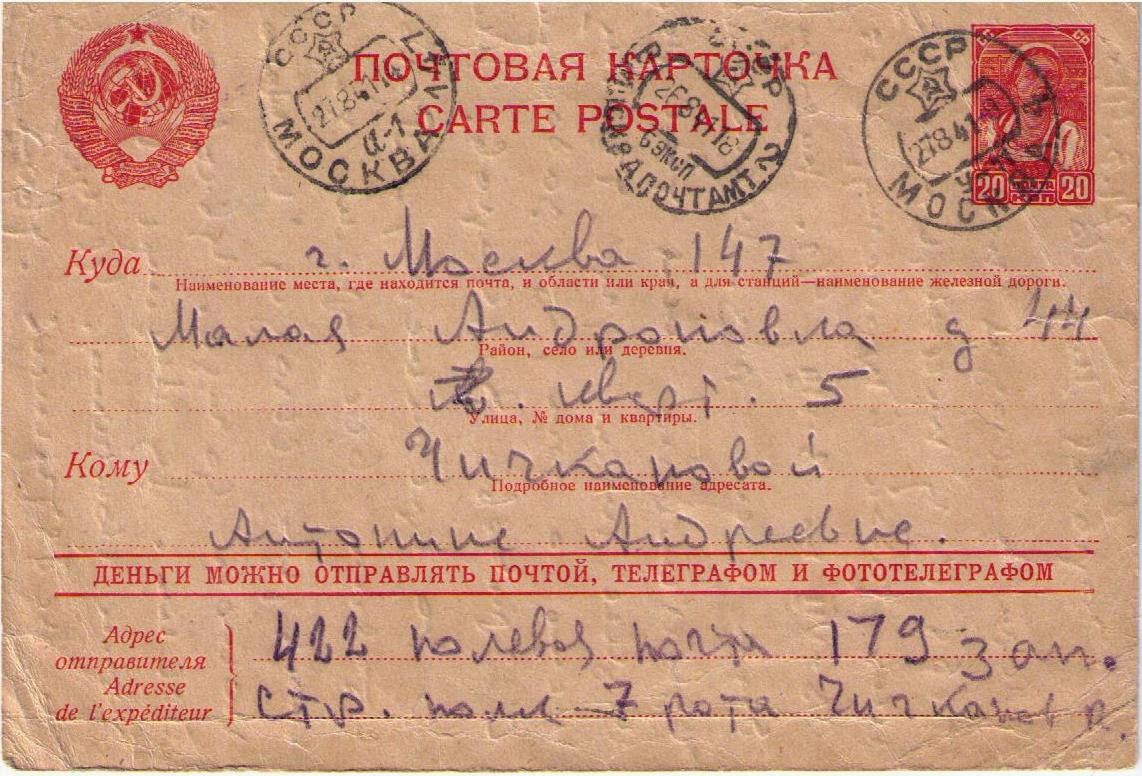 СССР
27.8.41
МОСКВА
СССР
26.8.41.18
6 ЭКСП
ПОЧТАМТ. 2
СССР
27.8.41
МОСКВА
СС СР
ПОЧТОВАЯ КАРТОЧКА
CARTE POSTALE
20 ПОЧТА КОП 20
Куда г. Москва 147
Наименование места, где находится почта, и области или края, а для станций—наименование железной дороги.
Малая Андроновка д 44
Район, село или деревня.
кварт. 5
Улица, № дома и квартиры.
Кому Чичкановой
Подробное наименование адресата.
Антонине Андреевне.
ДЕНЬГИ МОЖНО ОТПРАВЛЯТЬ ПОЧТОЙ, ТЕЛЕГРАФОМ И ФОТОТЕЛЕГРАФОМ
Адрес отправителя
Adresse de l'expéditeur
422 полевая почта 179 зап.
стр. полк 7 рота Чичканов